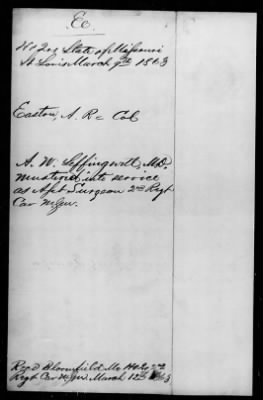 Ec.
Hd Qrs State of Missouri
St Louis March 9th 1863
Easton, A. R = Col
A. W. Leffingwell, M.D.
mustered into service
as Asst Surgeon 2nd Regt
Cav M.S.M.
Rec'd Bloomfield Mo Hd Qs 2nd
Regt Cav M.S.M. March 12th 1863